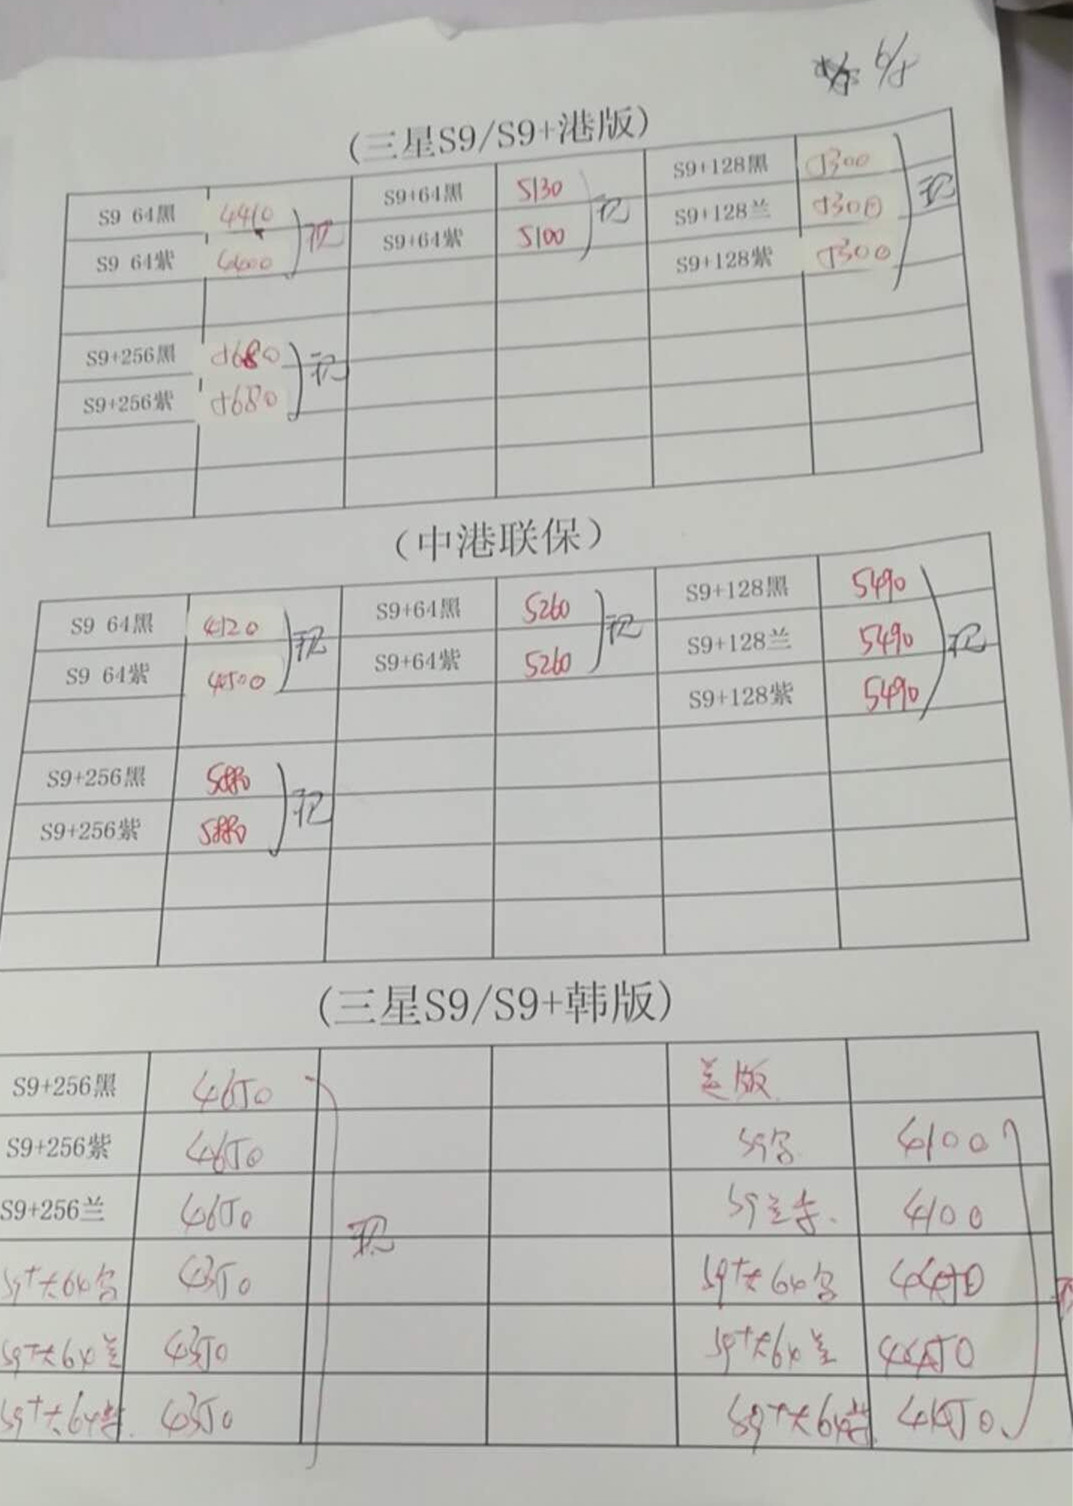 6/5
(三星S9/S9+港版)
S9 64黑 4410 现 S9+64黑 5130 现 S9+128黑 5300 现
S9 64紫 4400 S9+64紫 5100 S9+128兰 5300
S9+128紫 5300
S9+256黑 5680 现
S9+256紫 5680
(中港联保)
S9 64黑 现 S9+64黑 5260 现 S9+128黑 5490 现
S9 64紫 4500 S9+64紫 5260 S9+128兰 5490
S9+128紫 5490
S9+256黑 5880 现
S9+256紫 5880
(三星S9/S9+韩版)
S9+256黑 4650 美版
S9+256紫 4650 4100
S9+256兰 4650 现 4100
S9+大64 4350 S9+大64 4450
S9+大64兰 4350 S9+大64兰 4450
S9+大64紫 4350 S9+大64紫 4450